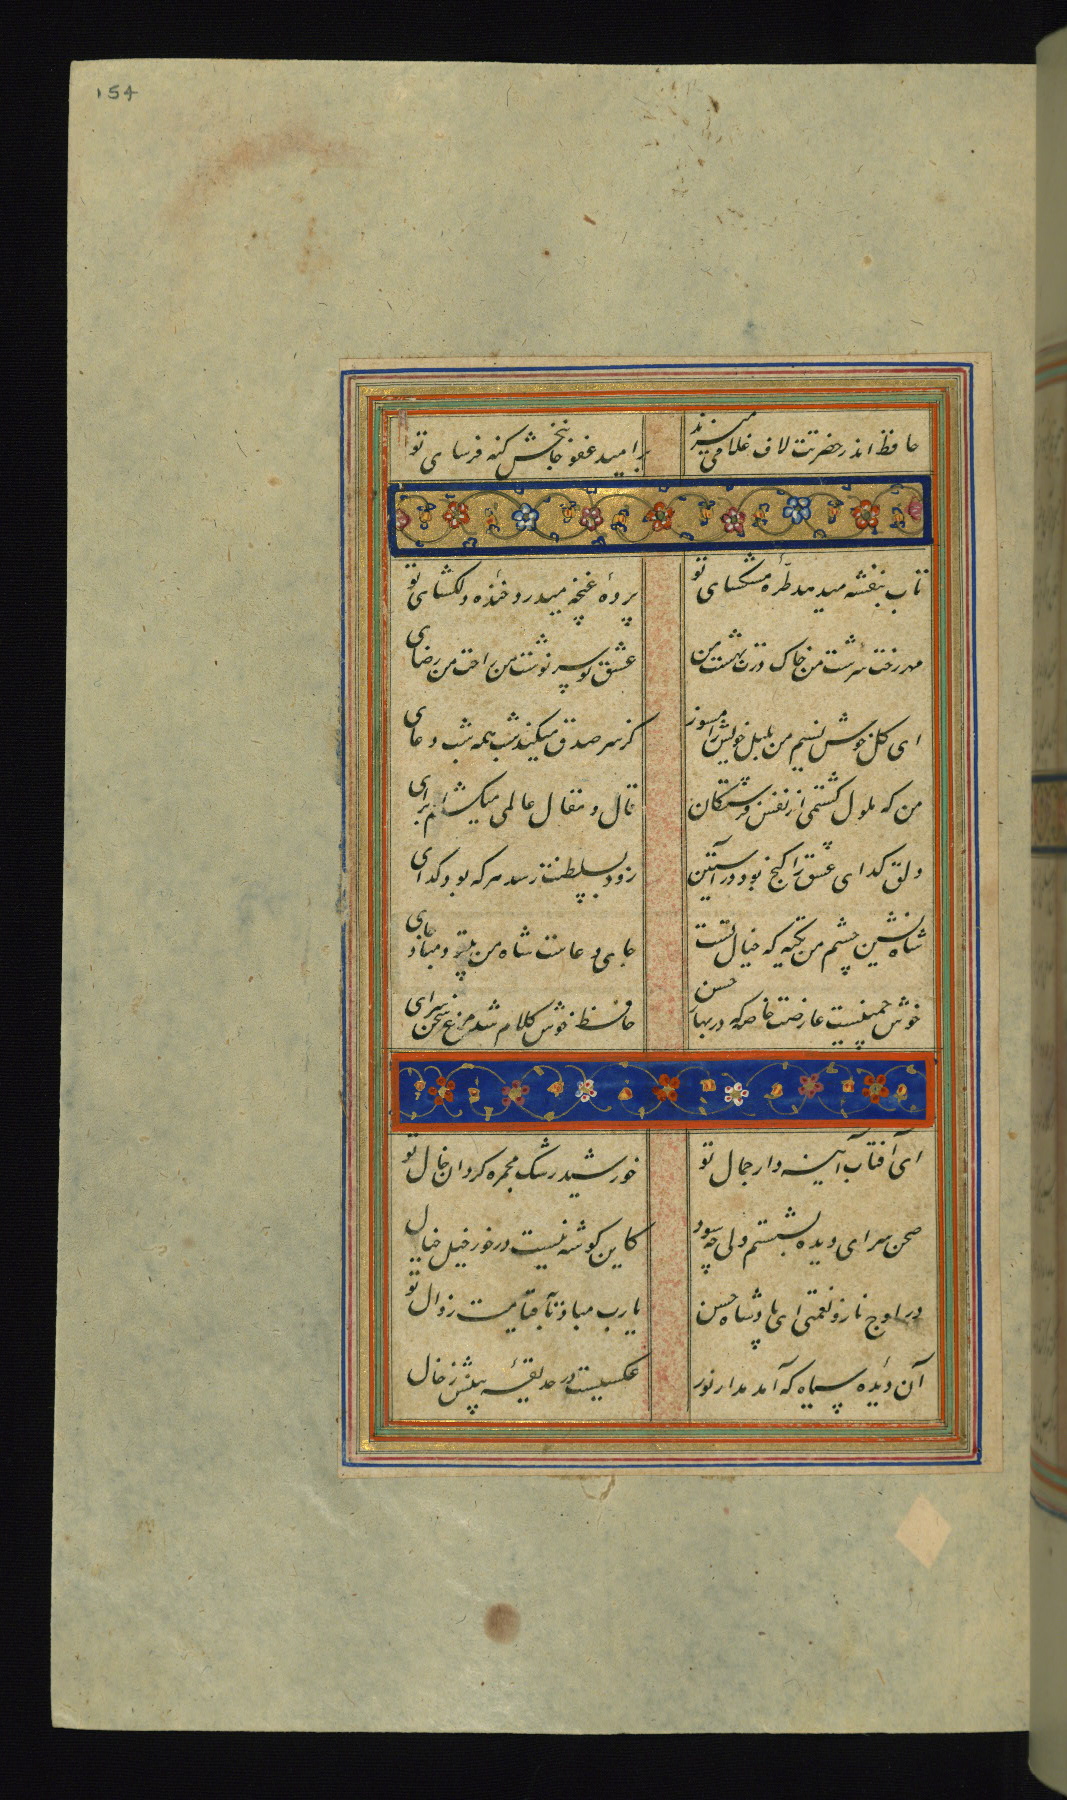 154
حافظ اندر حضرتت لاف غلامی میزند
بر امید عفو جانبخش گنه فرسای تو
تاب بنفشه میدهد طرّهٔ مشکسای تو
پردهٔ غنچه میدرد خندهٔ دلگشای تو
مهر رخت سرشت من خاک درت بهشت من
عشق تو سرنوشت من راحت من رضای
ای گل خوش نسیم من بلبل خویش را مسوز
کز سر صدق میکند شب همه شب دعای
من که ملول گشتمی از نفس فرشتگان
قال و مقال عالمی میکشم از برای
دلق گدای عشق را گنج بود در آستین
زود بسلطنت رسد هر که بود گدای
شاه نشین چشم من تکیه که خیال تست
جای دعاست شاه من بیتو مباد جای
خوش چمنیست عارضت خاصه که در بهار حسن
حافظ خوش کلام شد مرغ سخن سرای
ای آفتاب آینه دار جمال تو
خورشید رشک مجمره گردان خال تو
صحن سرای دیده بشستم ولی چه سود
کاین گوشه نیست در خور خیل خیال
در اوج ناز و نعمتی ای پادشاه حسن
یارب مباد تا بقیامت زوال تو
آن دیده سیاه که آمد مدار نور
عکسیست در حدیقهٔ بینش ز خال